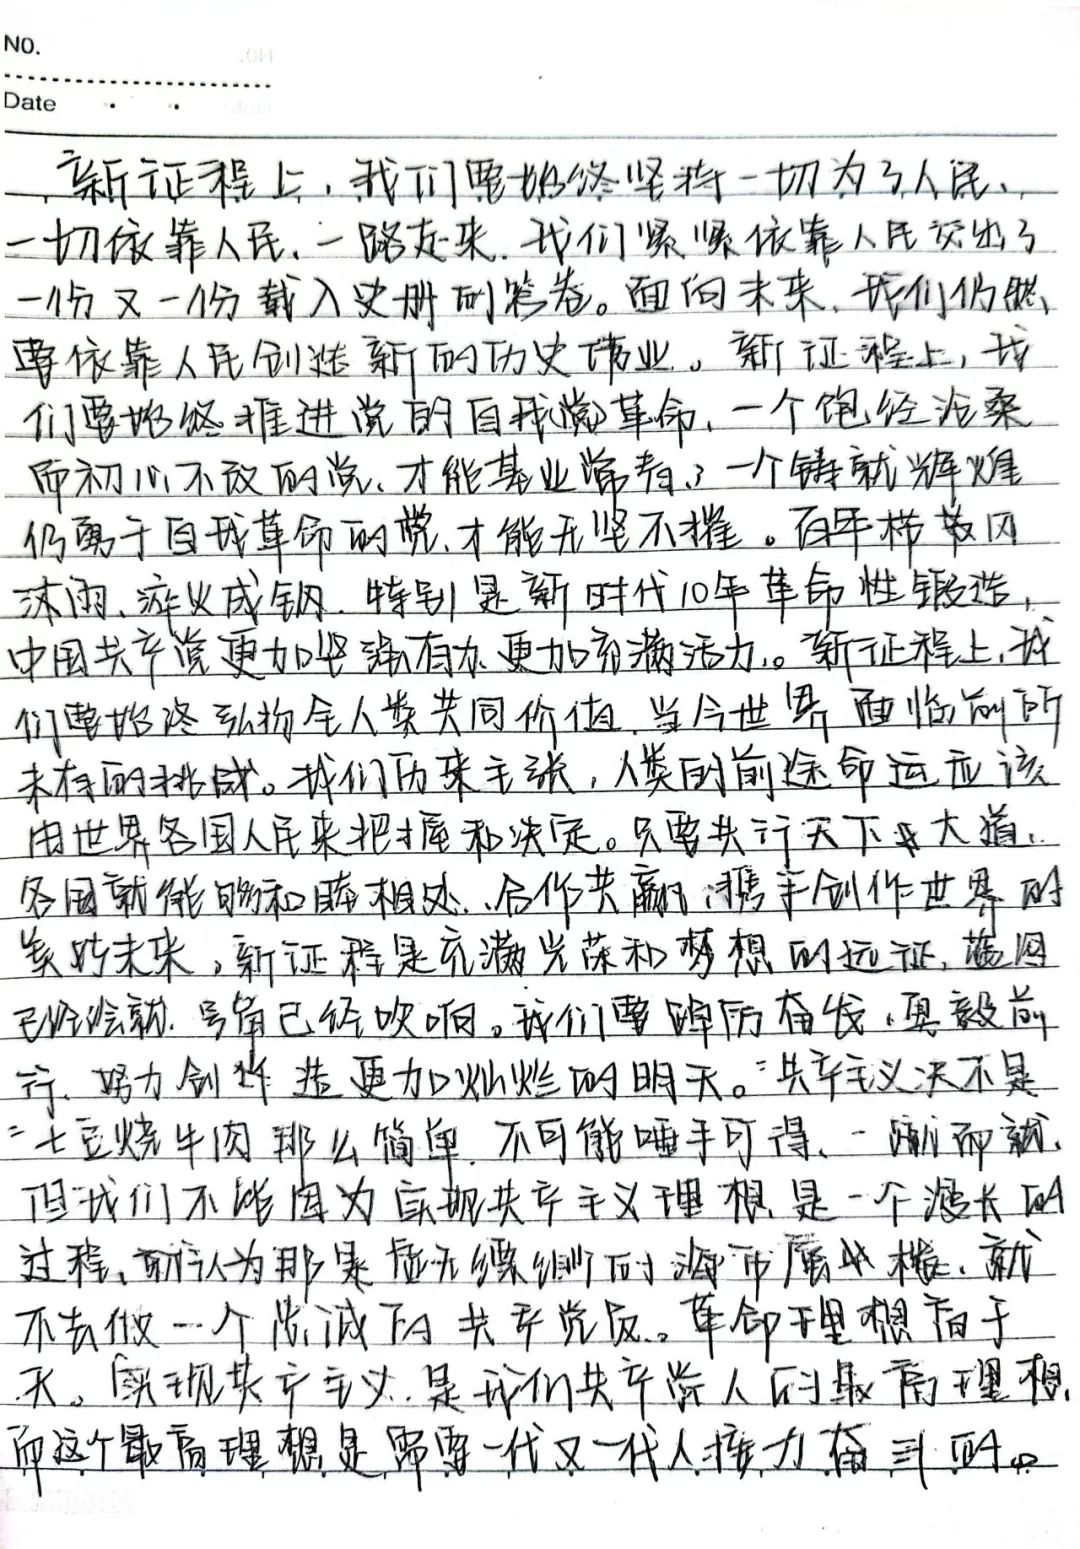 NO.
Date
新征程上，我们要始终坚持一切为了人民、
一切依靠人民、一路走来，我们紧紧依靠人民交出了
一份又一份载入史册的答卷。面向未来，我们仍然
要依靠人民创造新的历史伟业。新征程上，我
们要始终推进党的自我革命，一个饱经沧桑
而初心不改的党，才能基业常青；一个铸就辉煌
仍勇于自我革命的党，才能无坚不摧。百年栉风
沐雨、淬火成钢，特别是新时代10年革命性锻造，
中国共产党更加坚强有力、更加充满活力。新征程上，我
们要始终弘扬全人类共同价值，当今世界面临前所
未有的挑战。我们历来主张，人类的前途命运应该
由世界各国人民来把握和决定。只要共行天下大道，
各国就能够和睦相处、合作共赢，携手创作世界的
美好未来，新征程是充满光荣和梦想的远征，蓝图
已经绘就，号角已经吹响。我们要踔厉奋发，勇毅前
行、努力创造更加灿烂的明天。"共产主义决不是
"土豆烧牛肉那么简单，不可能唾手可得、一蹴而就，
但我们不能因为实现共产主义理想是一个漫长的
过程，就认为那是虚无缥缈的海市蜃楼，就
不去做一个忠诚的共产党员。革命理想高于
天。实现共产主义是我们共产党人的最高理想，
而这个最高理想是需要一代又一代人接力奋斗的。